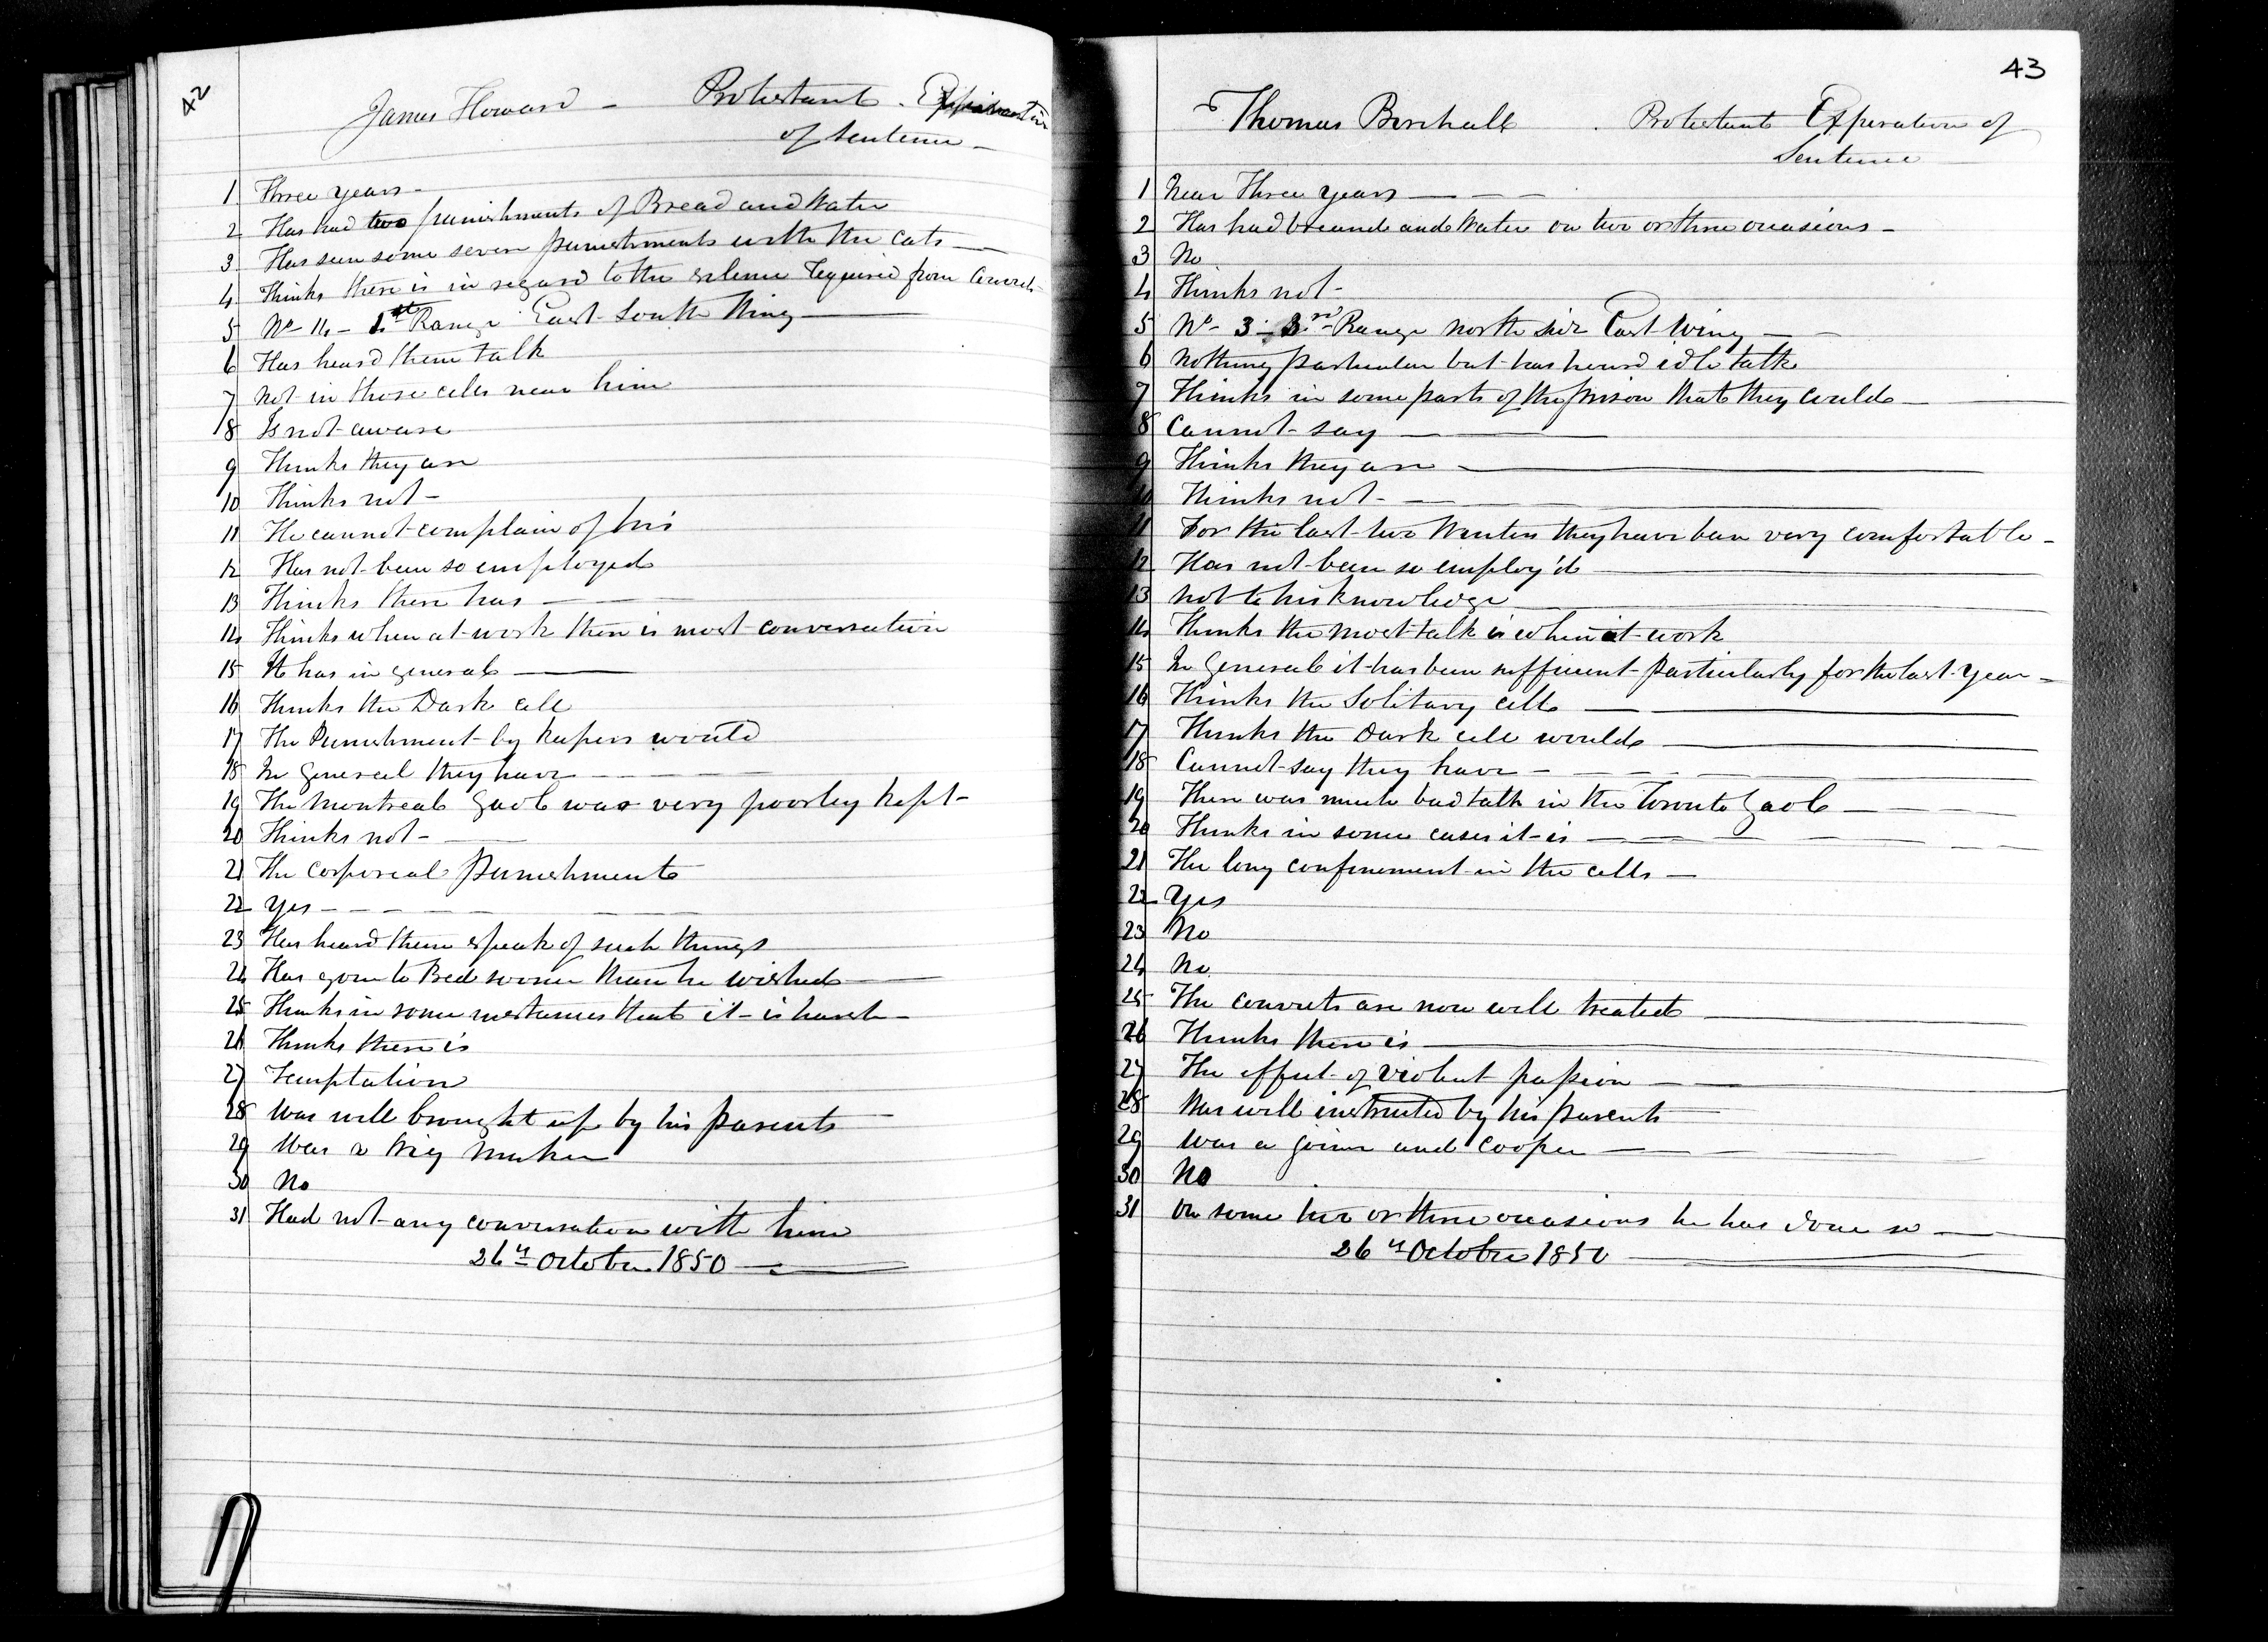 42
James Howard - Protestant - Expiration
of Sentence -
1 Three years -
2 Has had two punishments of Bread and Water
3 Has seen some severe punishments with the Cats -
4 Thinks there is in regard to the silence required from Convicts
5 No - 14 - 1st Range East South Wing
6 Has heard them talk
7 Not in those cells near him
8 Is not aware
9 Thinks they are
10 Thinks not -
11 He cannot complain of his
12 Has not been so employed
13 Thinks there has -
14 Thinks when at work there is most conversation
15 It has in general
16 Thinks the Dark cell
17 The Punishment by Keepers would
18 In general they have
19 The Montreal Gaol was very poorley kept -
20 Thinks not -
21 The corporeal punishments
22 Yes -
23 Has heard them speak of such things
24 Has gone to Bed sooner than he wished
25 Thinks in some instances that it is harsh -
26 Thinks there is
27 Temptation
28 Was well brought up by his parents
29 Was a Wig Maker
30 No
31 Had not any conversation with him
26th October 1850
43
Thomas Birchall . Protestant Experation of
Sentence
1 Near Three years
2 Has had bread and Water on two or three occasions -
3 No
4 Thinks not -
5 No - 3 - 3rd Range north side East Wing
6 Nothing particular but has heard idle talk
7 Thinks in some parts of the prison that they could
8 Cannot say
9 Thinks they are
10 Thinks not -
11 For the last two Winters they have been very comfortable -
12 Has not been so employ'd
13 Not to his knowledge
14 Thinks the most talk is when at work
15 In general it has been sufficient particularly for the last year -
16 Thinks the Solitary cell
17 Thinks the Dark cell would
18 Cannot say they have -
19 There was much bad talk in the Toronto Gaol
20 Thinks in some cases it is
21 The long confinement in the cells -
22 Yes
23 No
24 No
25 The convicts are now well treated
26 Thinks there is
27 The effect of violent passion
28 Was well instructed by his parents
29 Was a Joiner and Cooper
30 No
31 On some two or three occasions he has done so
26th October 1850